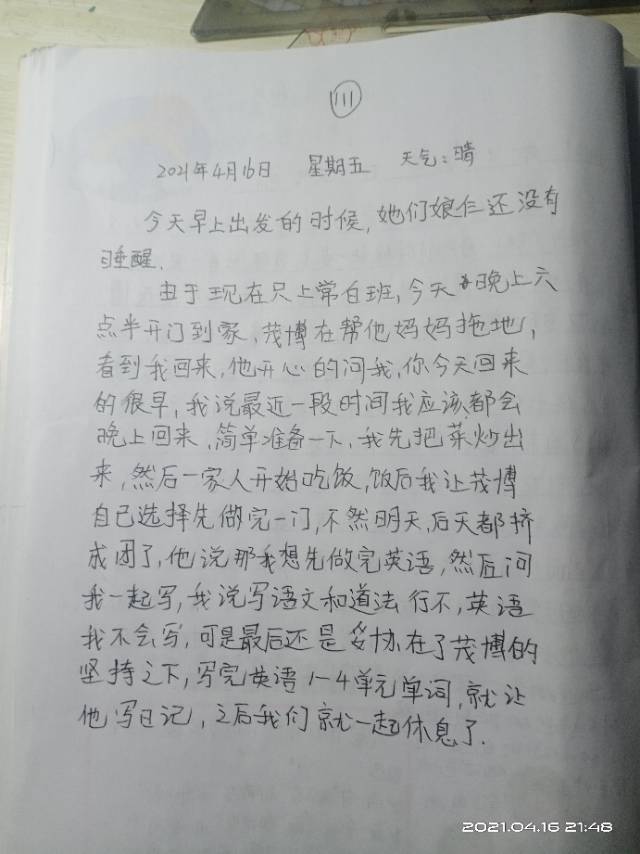 111
2021年4月16日 星期五 天气:晴
今天早上出发的时候,她们娘仨还没有
睡醒.
由于现在只上常白班,今天晚上六
点半开门到家,茂博在帮他妈妈拖地,
看到我回来,他开心的问我,你今天回来
的很早,我说最近一段时间我应该都会
晚上回来,简单准备一下,我先把菜炒出
来,然后一家人开始吃饭,饭后我让茂博
自己选择先做完一门,不然明天,后天都挤
成团了,他说那我想先做完英语,然后问
我一起写,我说写语文和道法行不,英语
我不会写,可是最后还是妥协在了茂博的
坚持之下,写完英语1-4单元单词,就让
他写日记,之后我们就一起休息了.
2021.04.16 21:48